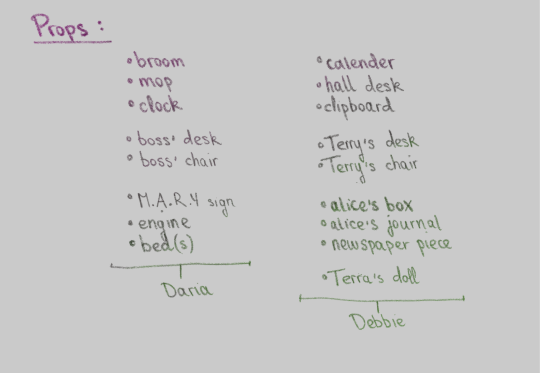 Props :
• broom
• mop
• clock
• boss' desk
• boss' chair
• M.A.R.Y sign
• engine
• bed(s)
Daria
• calender
• hall desk
• clipboard
• Terry's desk
• Terry's chair
• alice's box
• alice's journal
• newspaper piece
• Terra's doll
Debbie